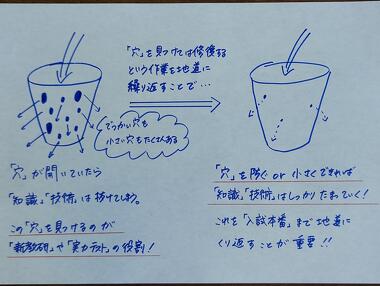 「穴」を見つけては修復する
という作業を地道に
繰り返すことで…
でっかい穴も
小さい穴もたくさんある
「穴」が開いていたら
「知識」「技術」は抜けてしまう。
この「穴」を見つけるのが
「新教研」や「実力テスト」の役割！
「穴」を防ぐ or 小さくできれば
「知識」「技術」はしっかりたまっていく！
これを「入試本番」まで地道に
くり返すことが重要！！